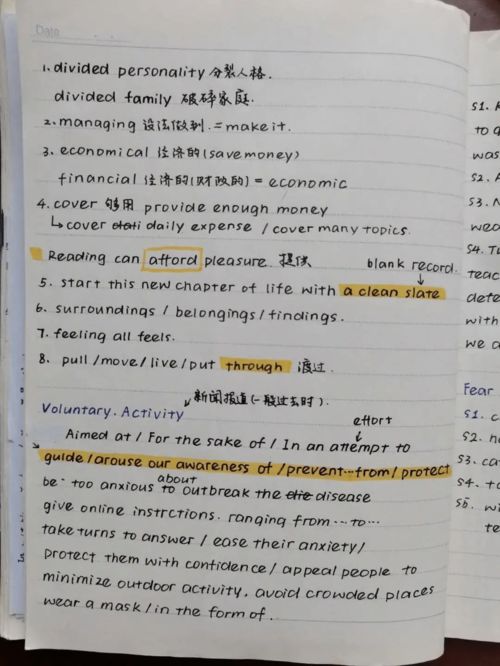 Date
1. divided personality 分裂人格.
divided family 破碎家庭.
2. managing 设法做到. = make it.
3. economical 经济的(save money)
financial 经济的(财政的) = economic
4. cover 够用 provide enough money
↳ cover daily expense / cover many topics.
Reading can afford pleasure. 提供
blank record.
5. start this new chapter of life with a clean slate
6. surroundings / belongings / findings.
7. feeling all feels.
8. pull / move / live / put through 渡过.
新闻报道(一般过去时).
Voluntary. Activity
effort
Aimed at / For the sake of / In an attempt to
guide / arouse our awareness of / prevent...from / protect
about
be too anxious to outbreak the disease
give online instrctions. ranging from ... to ...
take turns to answer / ease their anxiety /
protect them with confidence / appeal people to
minimize outdoor activity. avoid crowded places
wear a mask / in the form of.
S1.
to
was
S2.
S3.
wea
S4.
teac
dete
with
we
Fear
S1. c
S2.
S3. ca
S4. to
S5. wi
te